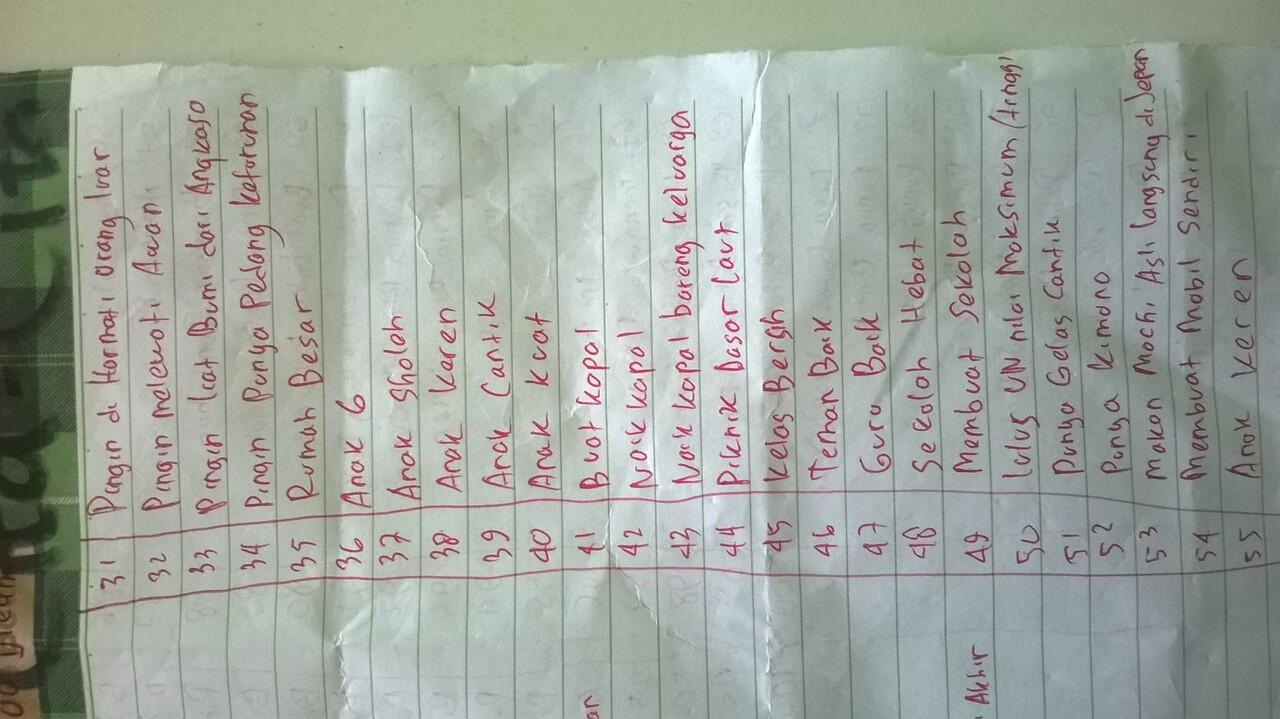 31 Pingin di Hormati orang luar
32 Pingin melewati Awan
33 Pingin liat Bumi dari Angkasa
34 Pingin Punya Pedang katururan
35 Rumah Besar
36 Anak 6
37 Anak Sholah
38 Anak Karen
39 Anak Cantik
40 Anak kuat
41 Buat kapal
42 Naik kapal
43 Naik kapal bareng keluarga
44 Piknik Dasar laut
45 Kelas Bersih
46 Teman Baik
47 Guru Baik
48 Sekolah Hebat
49 Membuat Sekolah
50 Lulus UN nilai Maksimum (tinggi
51 Punya Gelas Cantik
52 Punya Kimono
53 Makan Mochi Asli langsung di Jepan
54 Membuat Mobil Sendiri
55 Anak Keren
an
Akhir